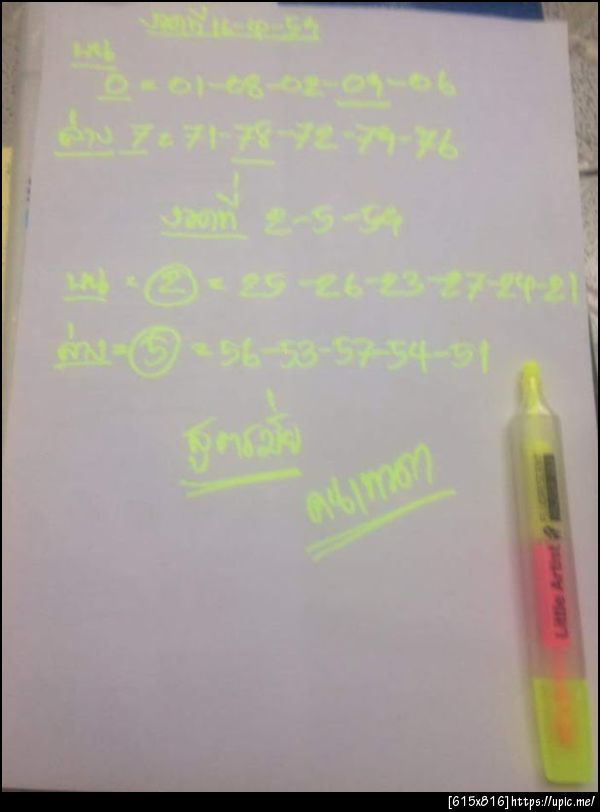 งวดที่ 16-4-59
บน
0 = 01-08-02-09-06
ล่าง 7 = 71-78-72-79-76
งวดที่ 2-5-59
บน = 2 = 25-26-23-27-24-21
ล่าง = 5 = 56-53-57-54-51
สูตรมั่ว
คนเทวดา
Little Artist
[615x816]https://upic.me/